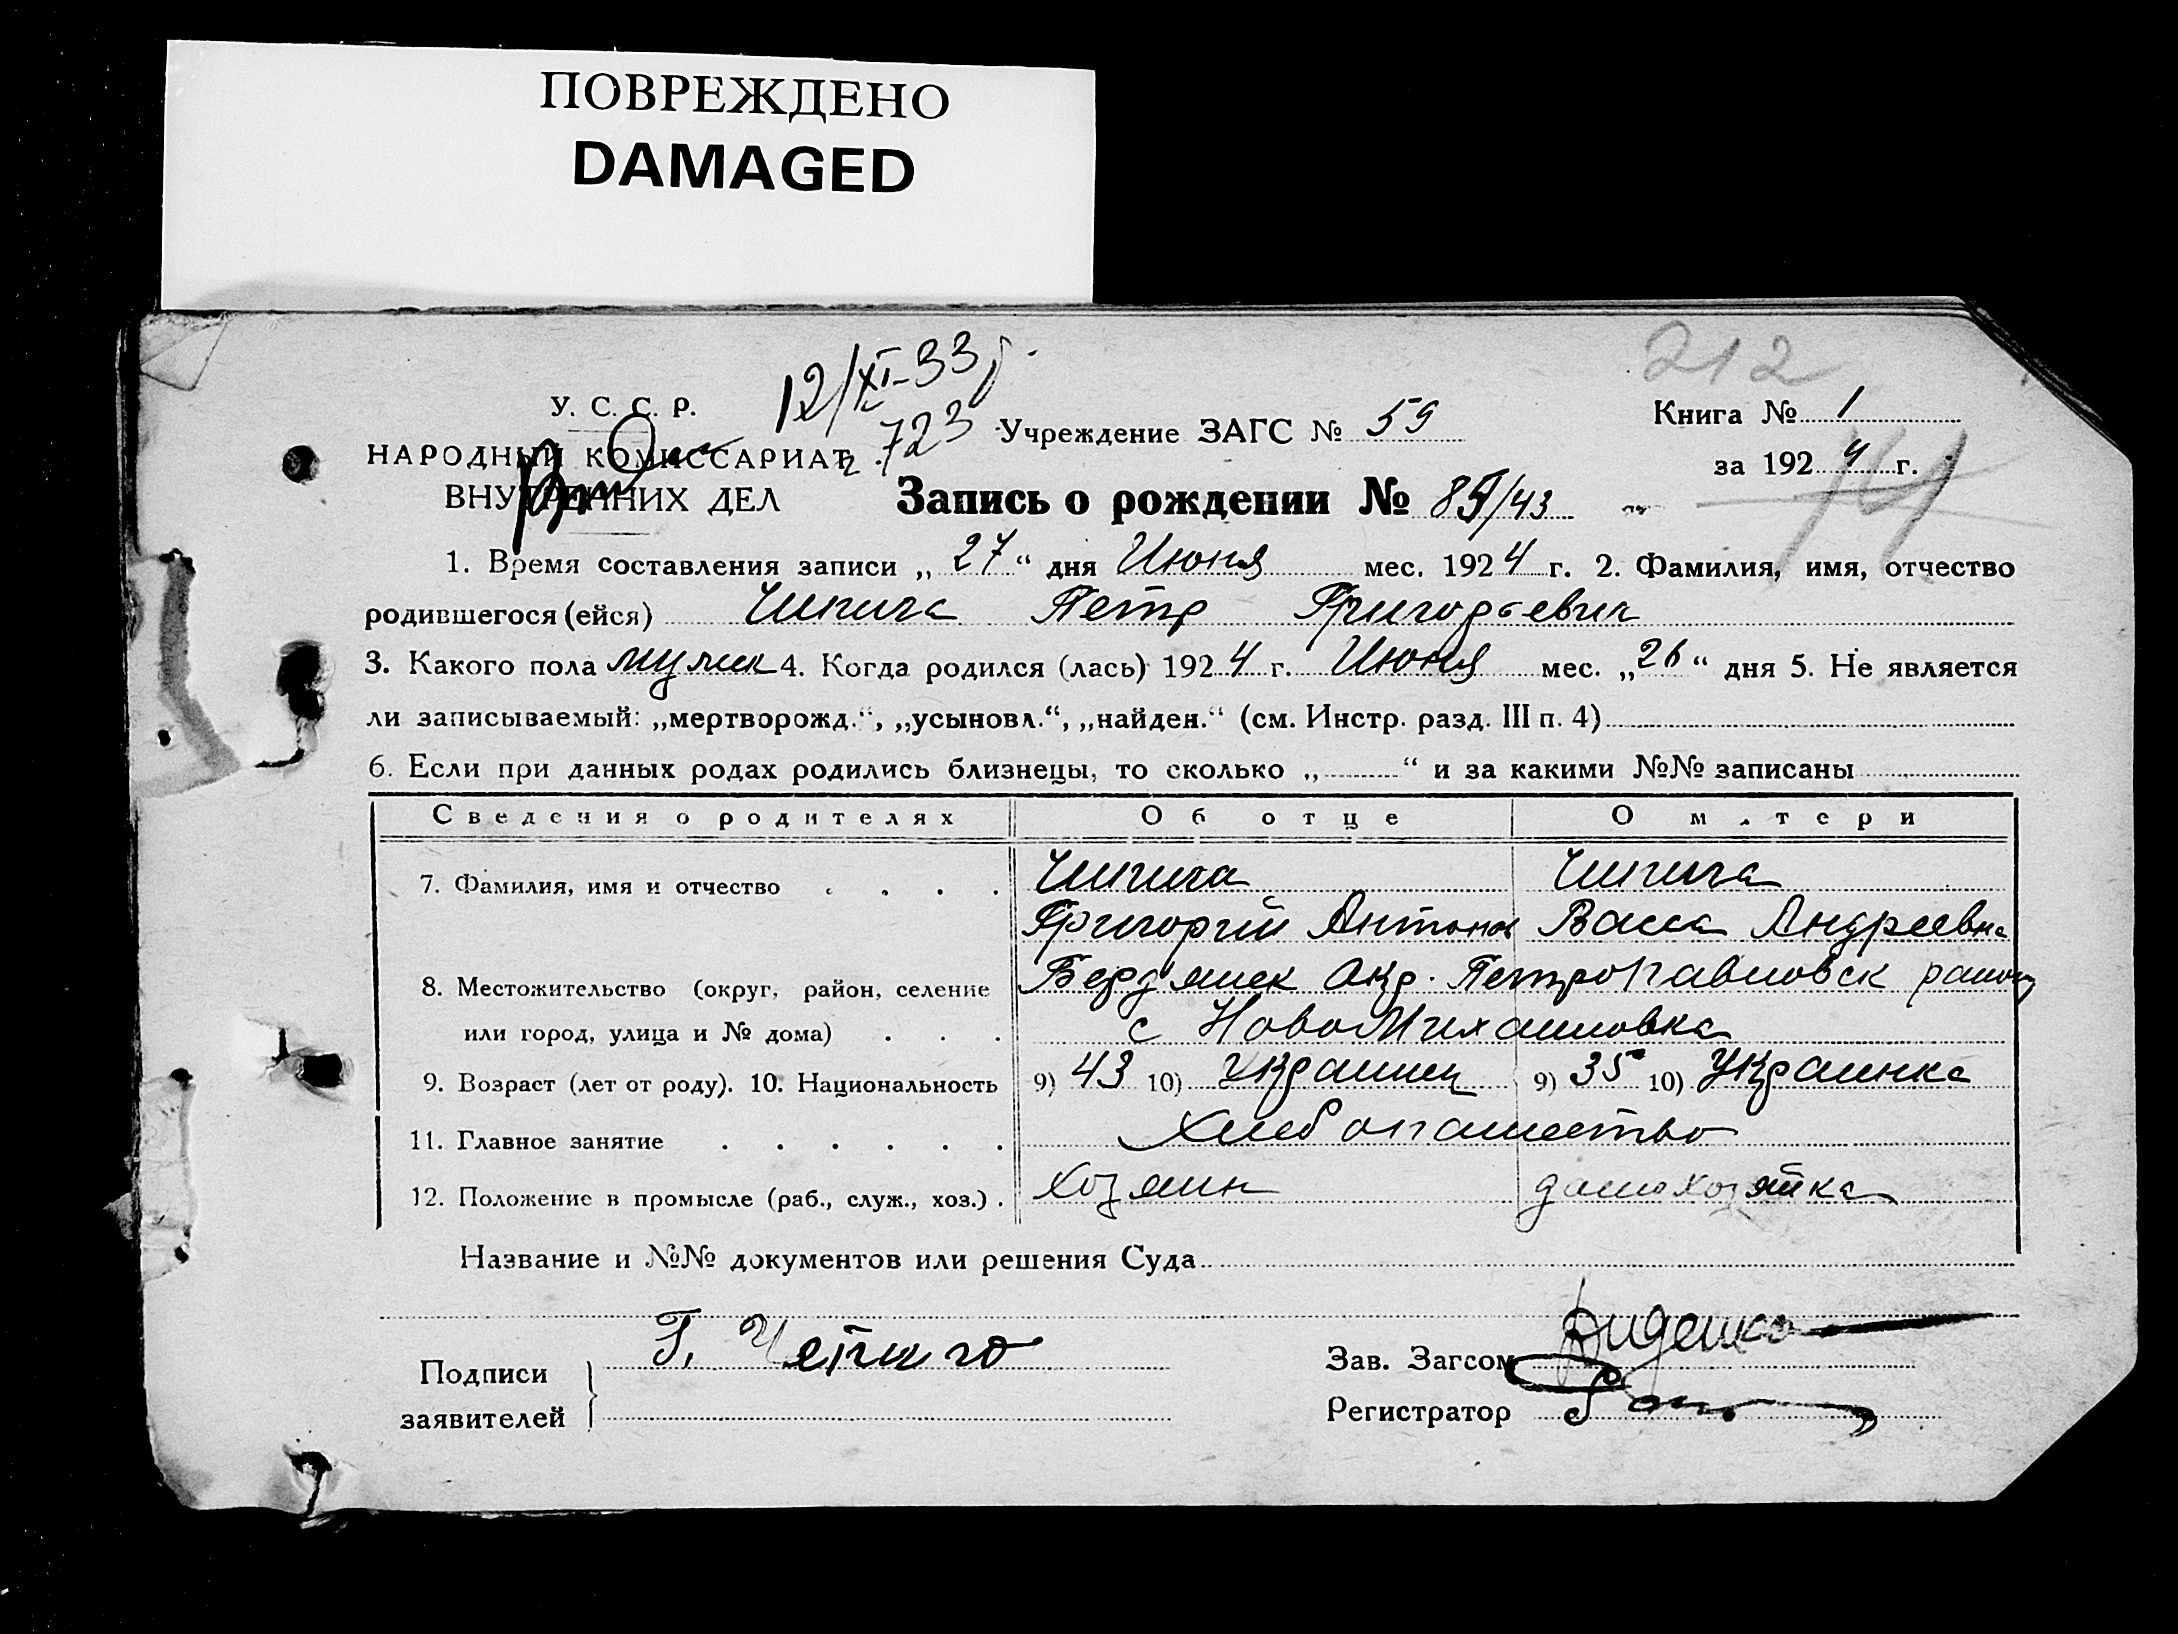 ПОВРЕЖДЕНО
DAMAGED
212
12/XI-33 г.
У. С. С. Р.
723
Учреждение ЗАГС № 59
Книга № 1
НАРОДНЫЙ КОМИССАРИАТ
за 1924 г.
ВНУТРЕННИХ ДЕЛ
Запись о рождении № 85/43
1. Время составления записи „27“ дня Июня мес. 1924 г. 2. Фамилия, имя, отчество
родившегося (ейся) Чипига Петр Григорьевич
3. Какого пола мужск 4. Когда родился (лась) 1924 г. Июня мес. „26“ дня 5. Не является
ли записываемый: „мертворожд.“, „усыновл.“, „найден.“ (см. Инстр. разд. III п. 4)
6. Если при данных родах родились близнецы, то сколько „ “ и за какими №№ записаны
Сведения о родителях Об отце О матери
7. Фамилия, имя и отчество Чипига Чипига
Григорий Антонов Васса Андреевна
8. Местожительство (округ, район, селение Бердянск Окр. Петропавловск район
или город, улица и № дома) с НовоМихайловка
9. Возраст (лет от роду). 10. Национальность 9) 43 10) Украинец 9) 35 10) Украинка
11. Главное занятие Хлебопашество
12. Положение в промысле (раб., служ., хоз.) хозяин домохозяйка
Название и №№ документов или решения Суда
Подписи
заявителей
Г.
Зав. Загсом
Регистратор